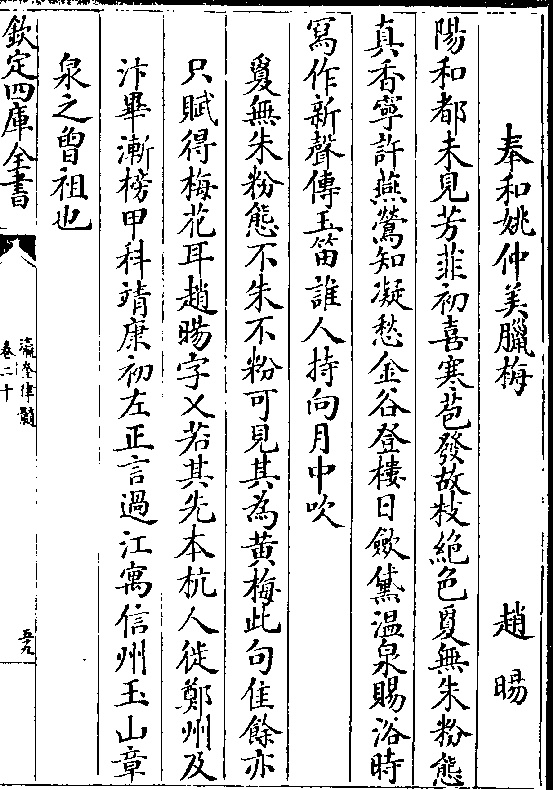 奉和姚仲美臘梅　趙暘
陽和都未見芳菲初喜寒苞發故枝絶色夐無朱粉態
真香寧許燕鶯知凝愁金谷登樓日歛黛溫泉賜浴時
寫作新聲傳玉笛誰人持向月中吹
夐無朱粉態不朱不粉可見其為黄梅此句佳餘亦
只賦得梅花耳趙暘字乂若其先本杭人徙鄭州及
汴畢漸榜甲科靖康初左正言過江寓信州玉山章
泉之曾祖也
欽定四庫全書
瀛奎律髓
卷二十
五九